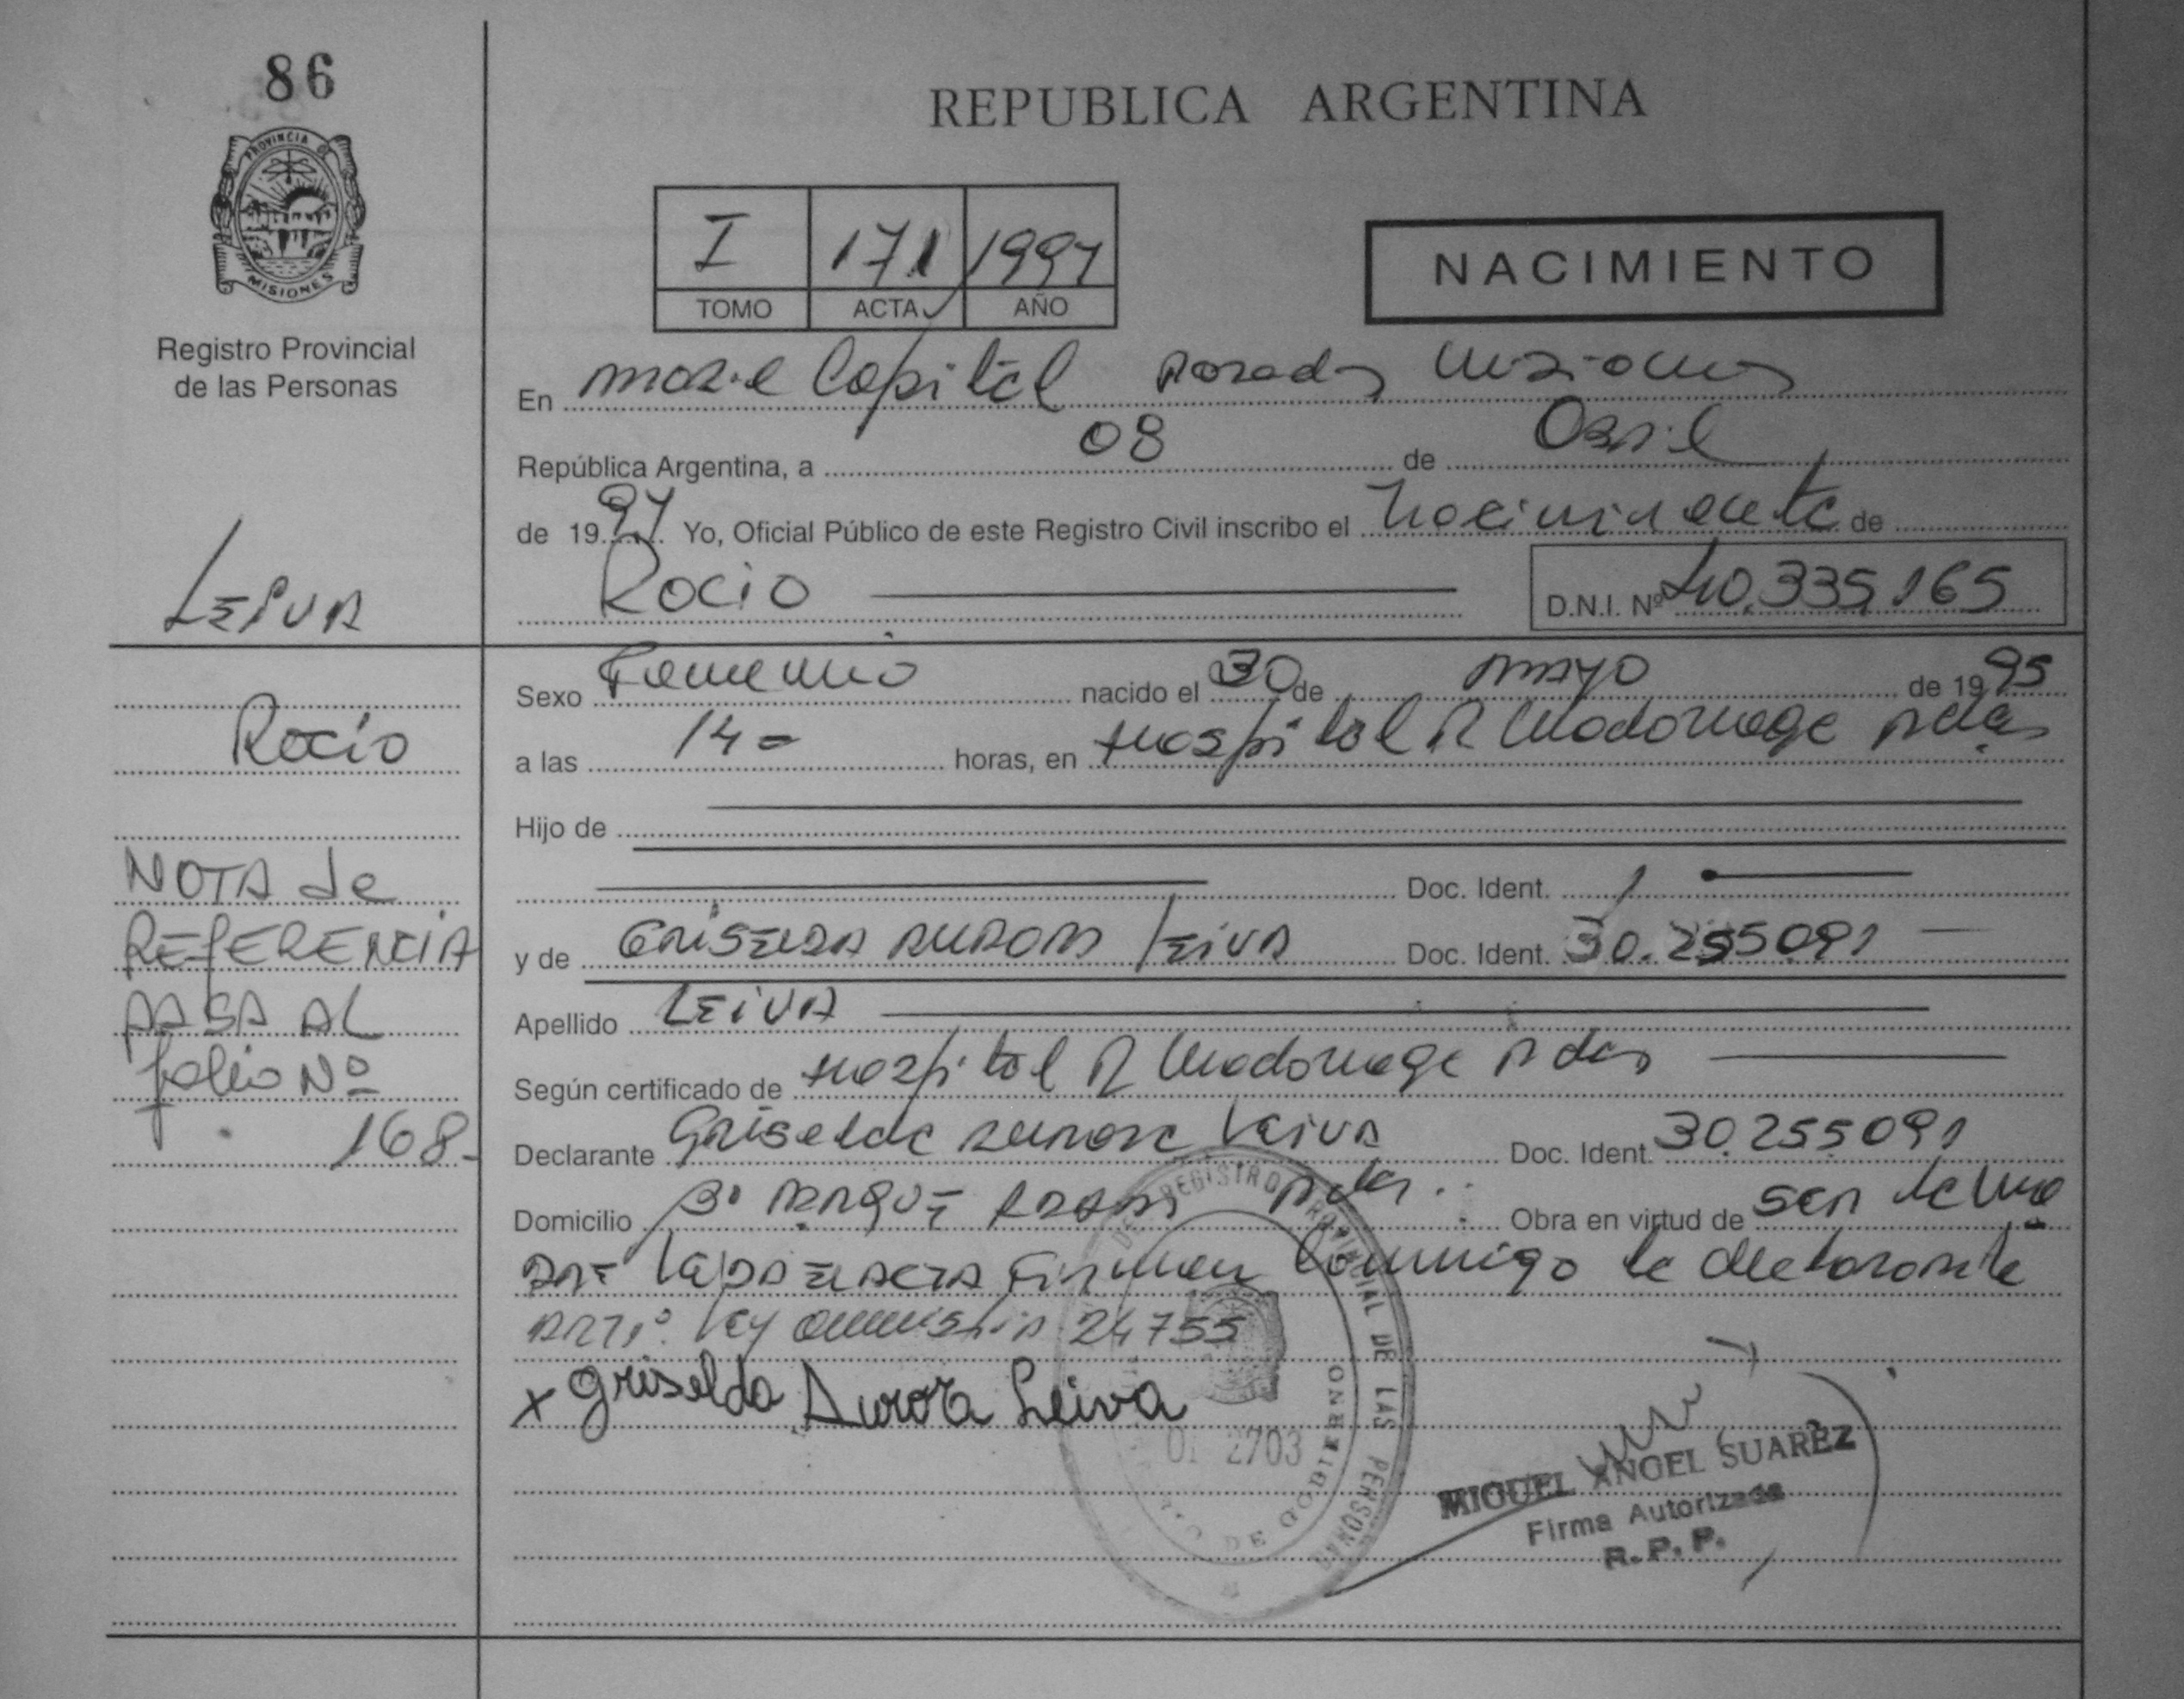 86
REPUBLICA ARGENTINA
PROVINCIA DE
MISIONES
Registro Provincial
de las Personas
I 171 1997
TOMO ACTA AÑO
NACIMIENTO
En Capital Posadas Misiones
República Argentina, a 08 de Abril
de 1997 Yo, Oficial Público de este Registro Civil inscribo el nacimiento de
Rocio D.N.I. Nº 40.335,165
LEIVA
Rocío
NOTA de
REFERENCIA
PASA AL
folio Nº
168-
Sexo Femenino nacido el 30 de mayo de 1995
a las 14 - horas, en Hospital R Madariaga Pdas
Hijo de
Doc. Ident.
y de GRISELDA AURORA LEIVA Doc. Ident. 30.255091
Apellido LEIVA
Según certificado de Hospital R Madariaga Pdas
Declarante Griselda Aurora Leiva Doc. Ident. 30.255091
Domicilio Bº PARQUE ADAM Pdas. Obra en virtud de
firman conmigo la declarante
Ley amnistia 24755
x Griselda Aurora Leiva
DE REGISTRO PROVINCIAL DE LAS PERSONAS
DE GOBIERNO
2703
MIGUEL ANGEL SUAREZ
Firma Autorizada
R. P. P.